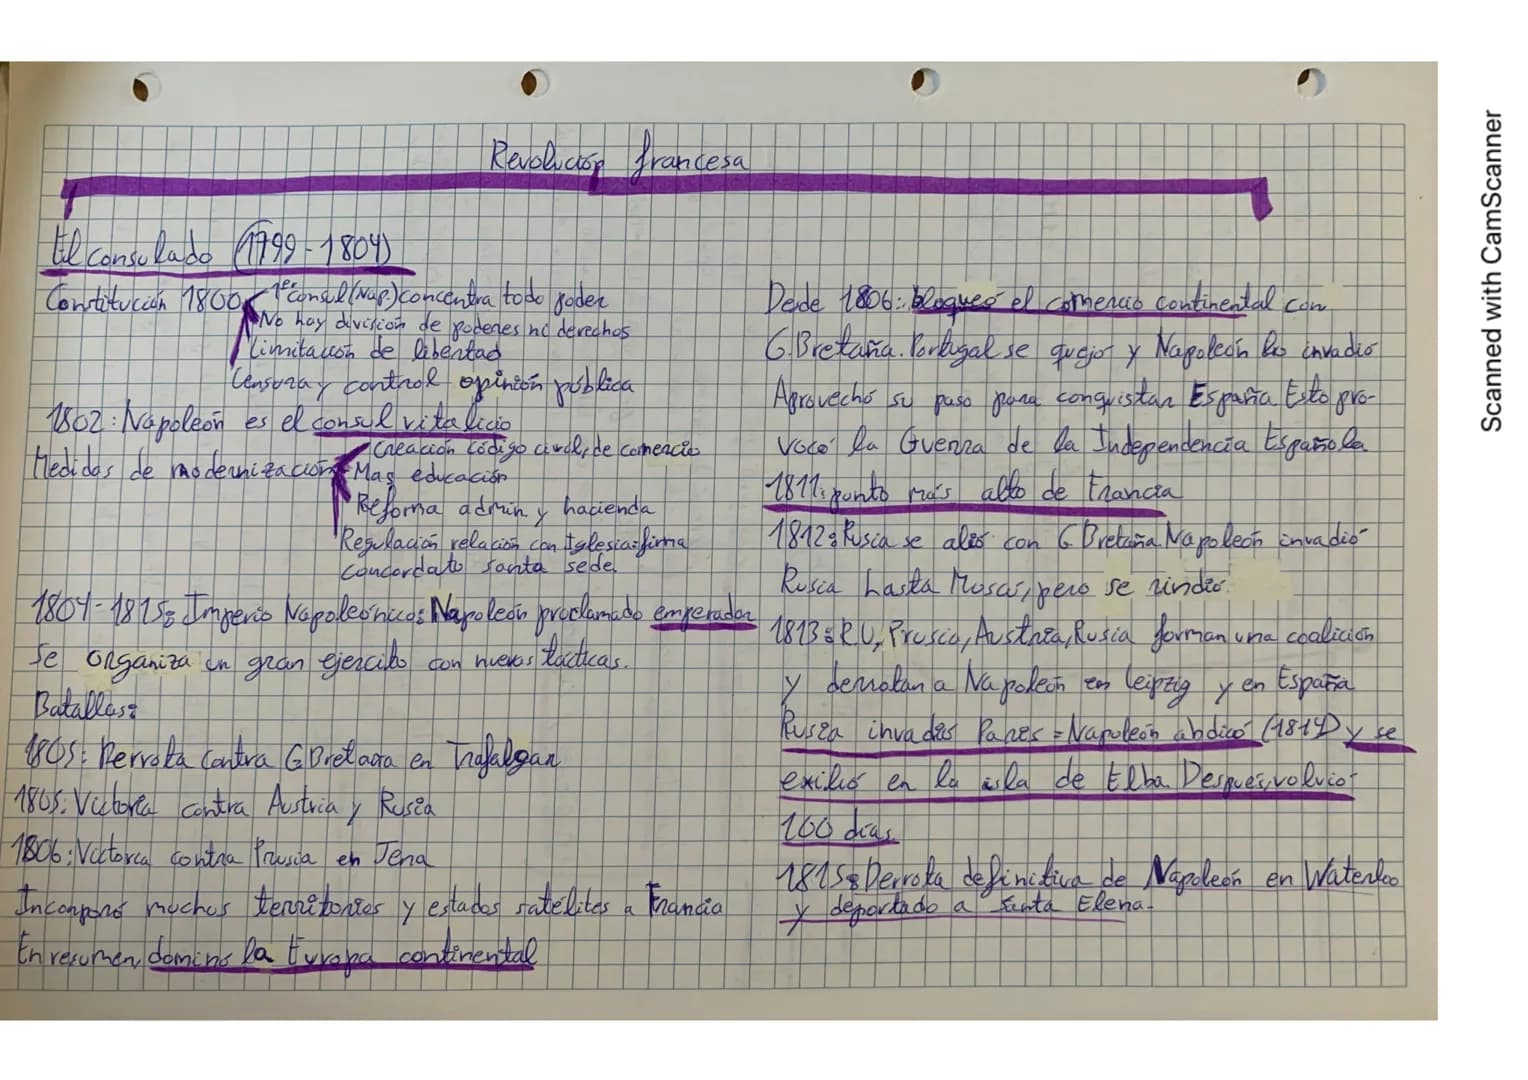 Revolución francesa
El consulado (1799-1804)
Constitución 1800 1er consul (Nap.) concentra todo poder
No hay división de poderes ni derechos
Limitación de libertad
Censura y control opinión pública
1802: Napoleón es el consul vitalicio
Medidas de modernización Creación código civil, de comercio
Mas educación
Reforma admin y hacienda
Regulación relación con Iglesia=firma
concordato santa sede.
1804-1815: Imperio Napoleónico: Napoleón proclamado emperador
Se organiza un gran ejercito con nuevas tácticas.
Batallas:
1805: Derrota contra G Bretaña en Trafalgar
1805: Victoria contra Austria y Rusia
1806: Victoria contra Prusia en Jena
Incorporó muchos territorios y estados satélites a Francia
En resumen, domino la Europa continental
Desde 1806: bloqueó el comercio continental con
G.Bretaña. Portugal se quejó y Napoleón los invadió
Aprovechó su paso para conquistar España Esto pro-
vocó la Guerra de la Independencia Española
1811: punto más alto de Francia
1812: Rusia se alió con G Bretaña. Napoleón invadió
Rusia hasta Moscú, pero se rindió.
1813: R.U, Prusia, Austria, Rusia forman una coalición
y derrotan a Napoleón en Leipzig y en España
Rusia invade Pares = Napoleón abdicó (1814) y se
exilió en la isla de Elba. Despues, volvió
100 días.
1815: Derrota definitiva de Napoleón en Waterloo
y deportado a Santa Elena.
Scanned with CamScanner